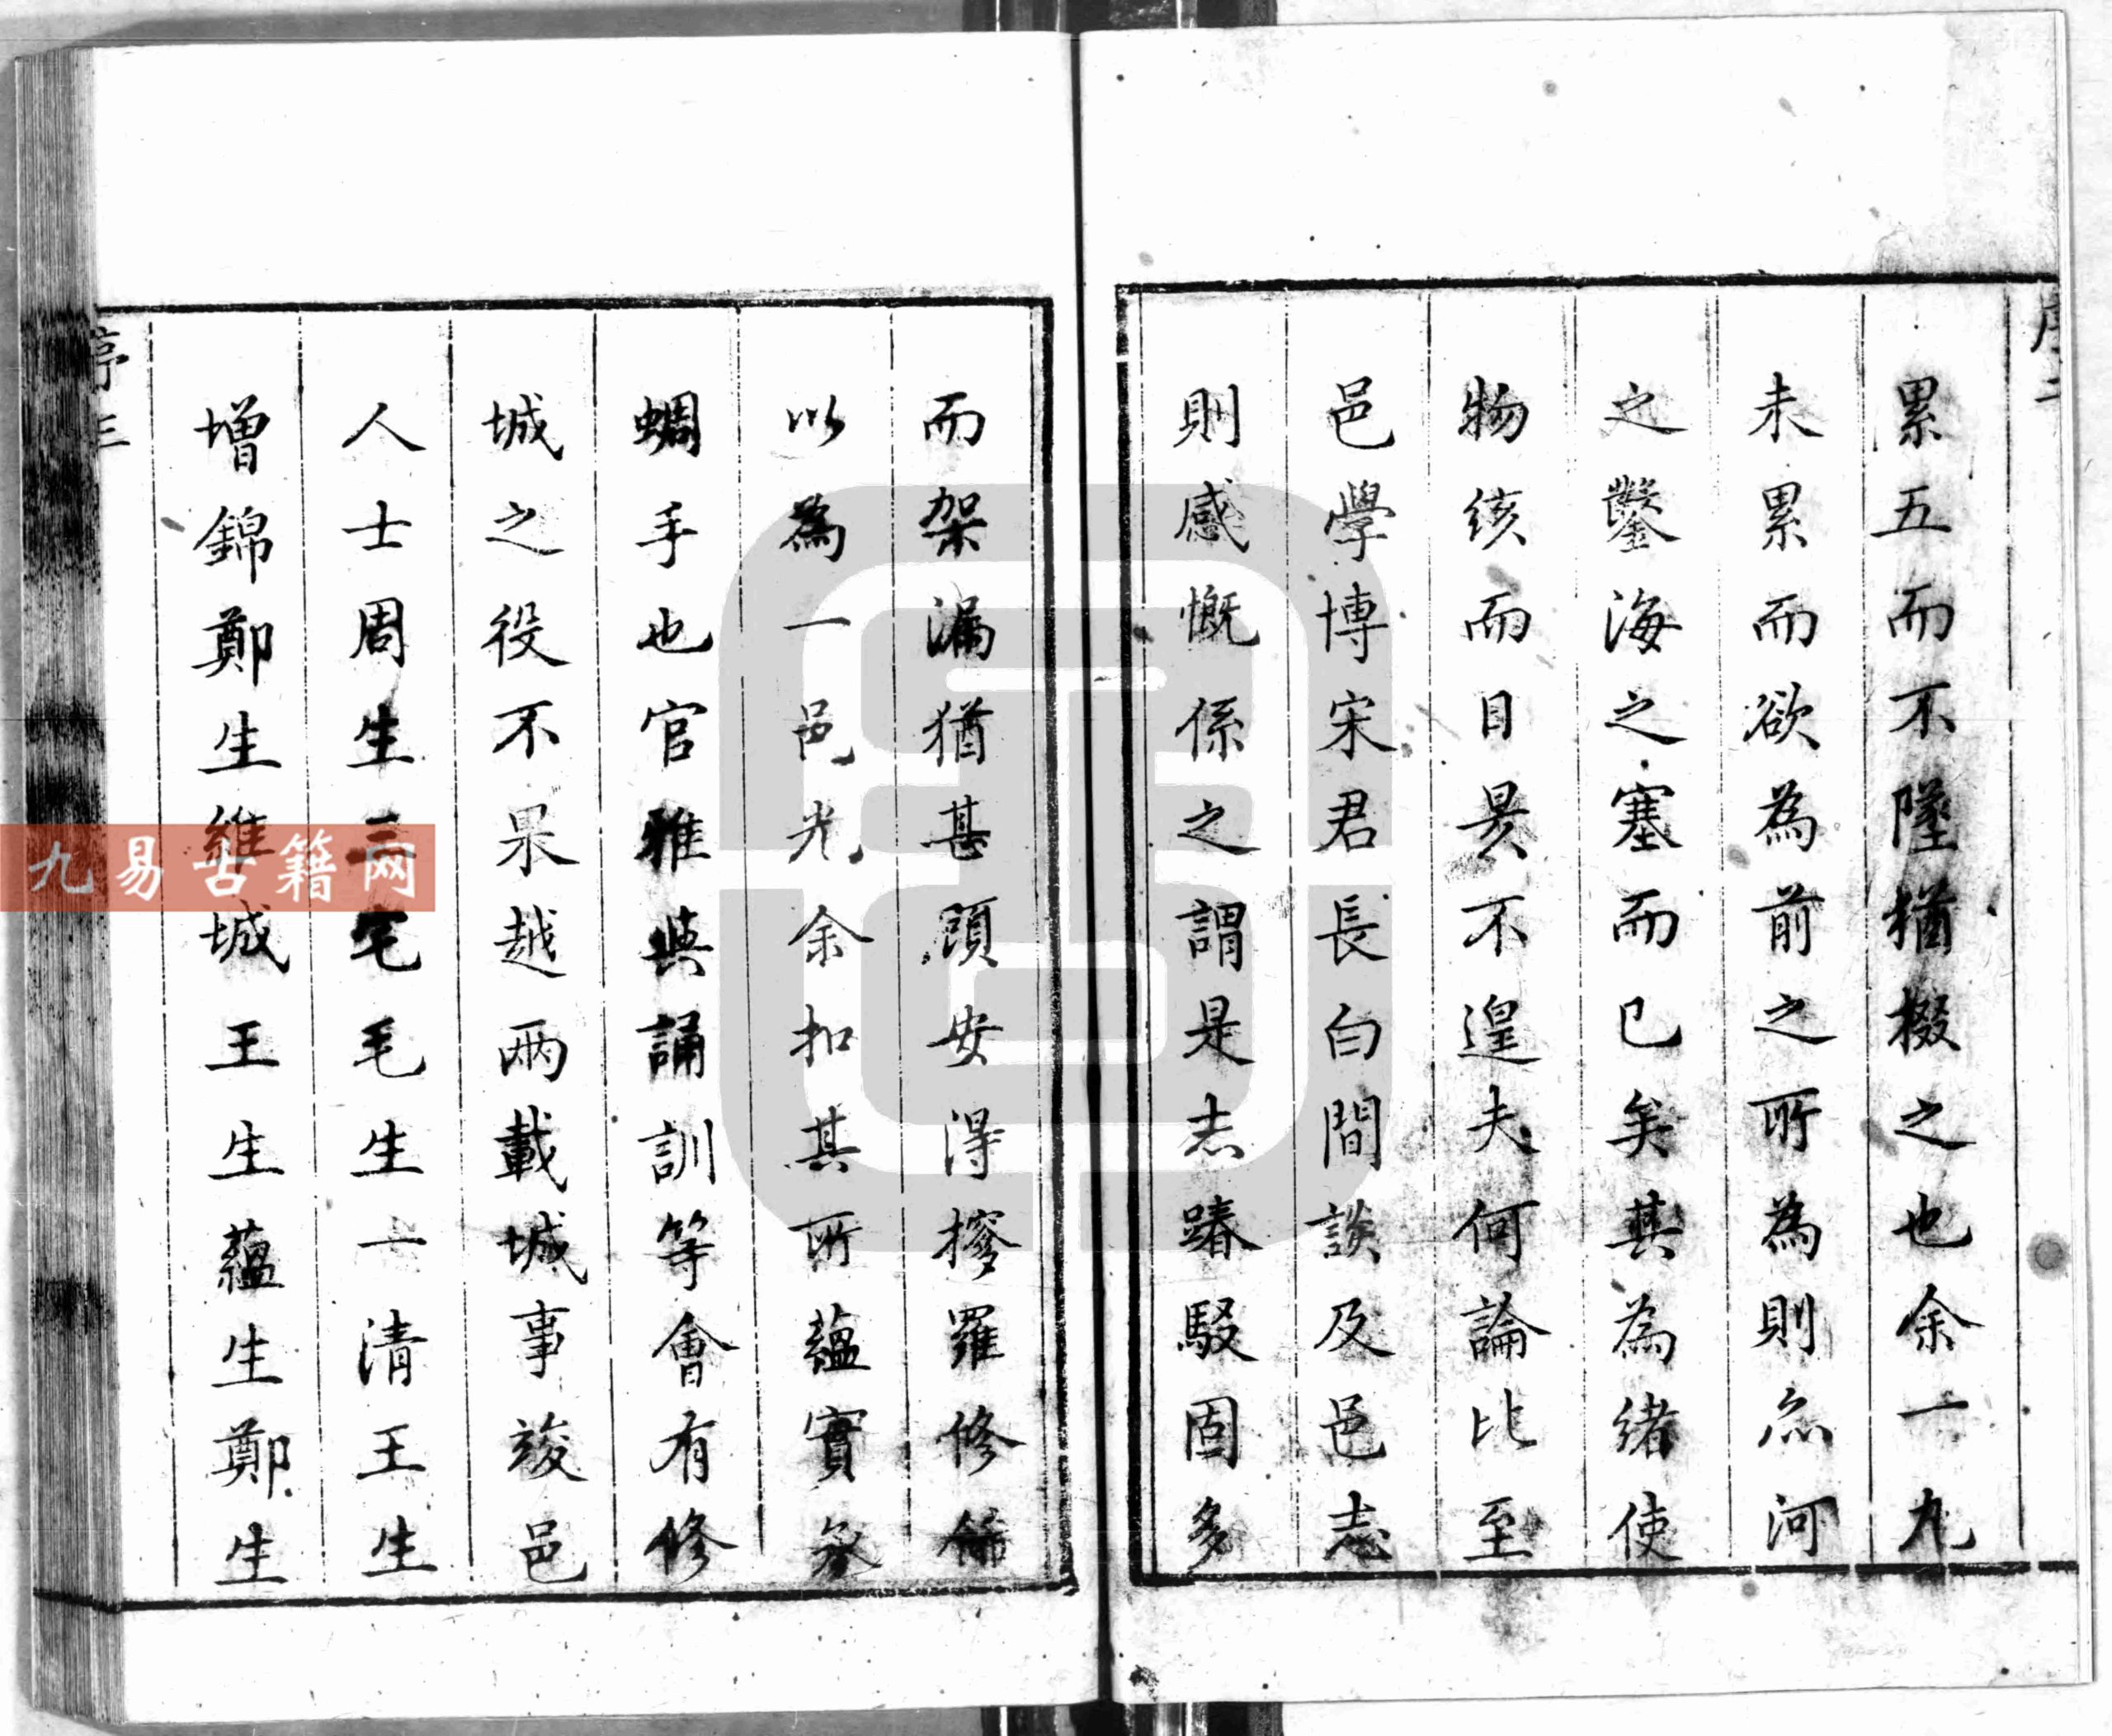 序二
累五而不墜猶掇之也余一九
未累而欲為前之所為則亦河
之鑿海之塞而已矣其為緒使
物絯而目昃不遑夫何論比至
邑學博宋君長白間談及邑志
則感慨係之謂是志踳駁固多
而架漏猶甚頭安得摎羅修備
以為一邑光余扣其所蘊實承
蜩手也官雅與誦訓等會有修
城之役不果越兩載城事竣邑
人士周生三宅毛生一清王生
增錦鄭生維城王生蘊生鄭生
序三
九易古籍网